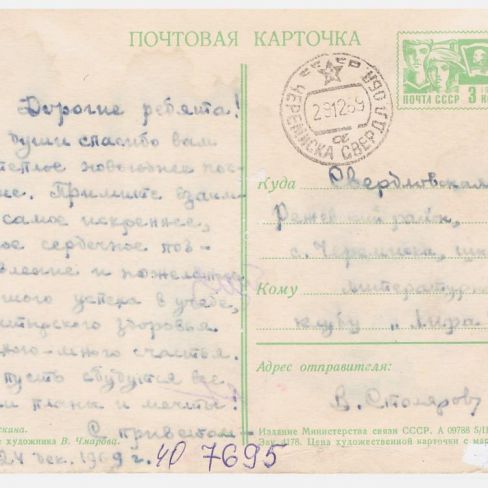 ПОЧТОВАЯ КАРТОЧКА
ПОЧТА СССР 3
29 12 69
ЧЕРЕМИССКА СВЕРД
Дорогие ребята!
души спасибо вам
теплое новогоднее поз-
Примите взаим-
самое искреннее,
ое сердечное поз-
вление и пожелание
шого успеха в учебе,
атырского здоровья
ного-много счастья.
пусть сбудутся все
и планы и мечты!
С приветом -
24 дек. 1969 г.
7695
Куда Свердловская
Режевский район,
с. Черемисска, шк
Кому литературно
клубу "Лира"
Адрес отправителя:
В. Столяров
скана.
е художника В. Чмарова.
Издание Министерства связи СССР. А 09788 5/II
Зак. 4178. Цена художественной карточки с мар